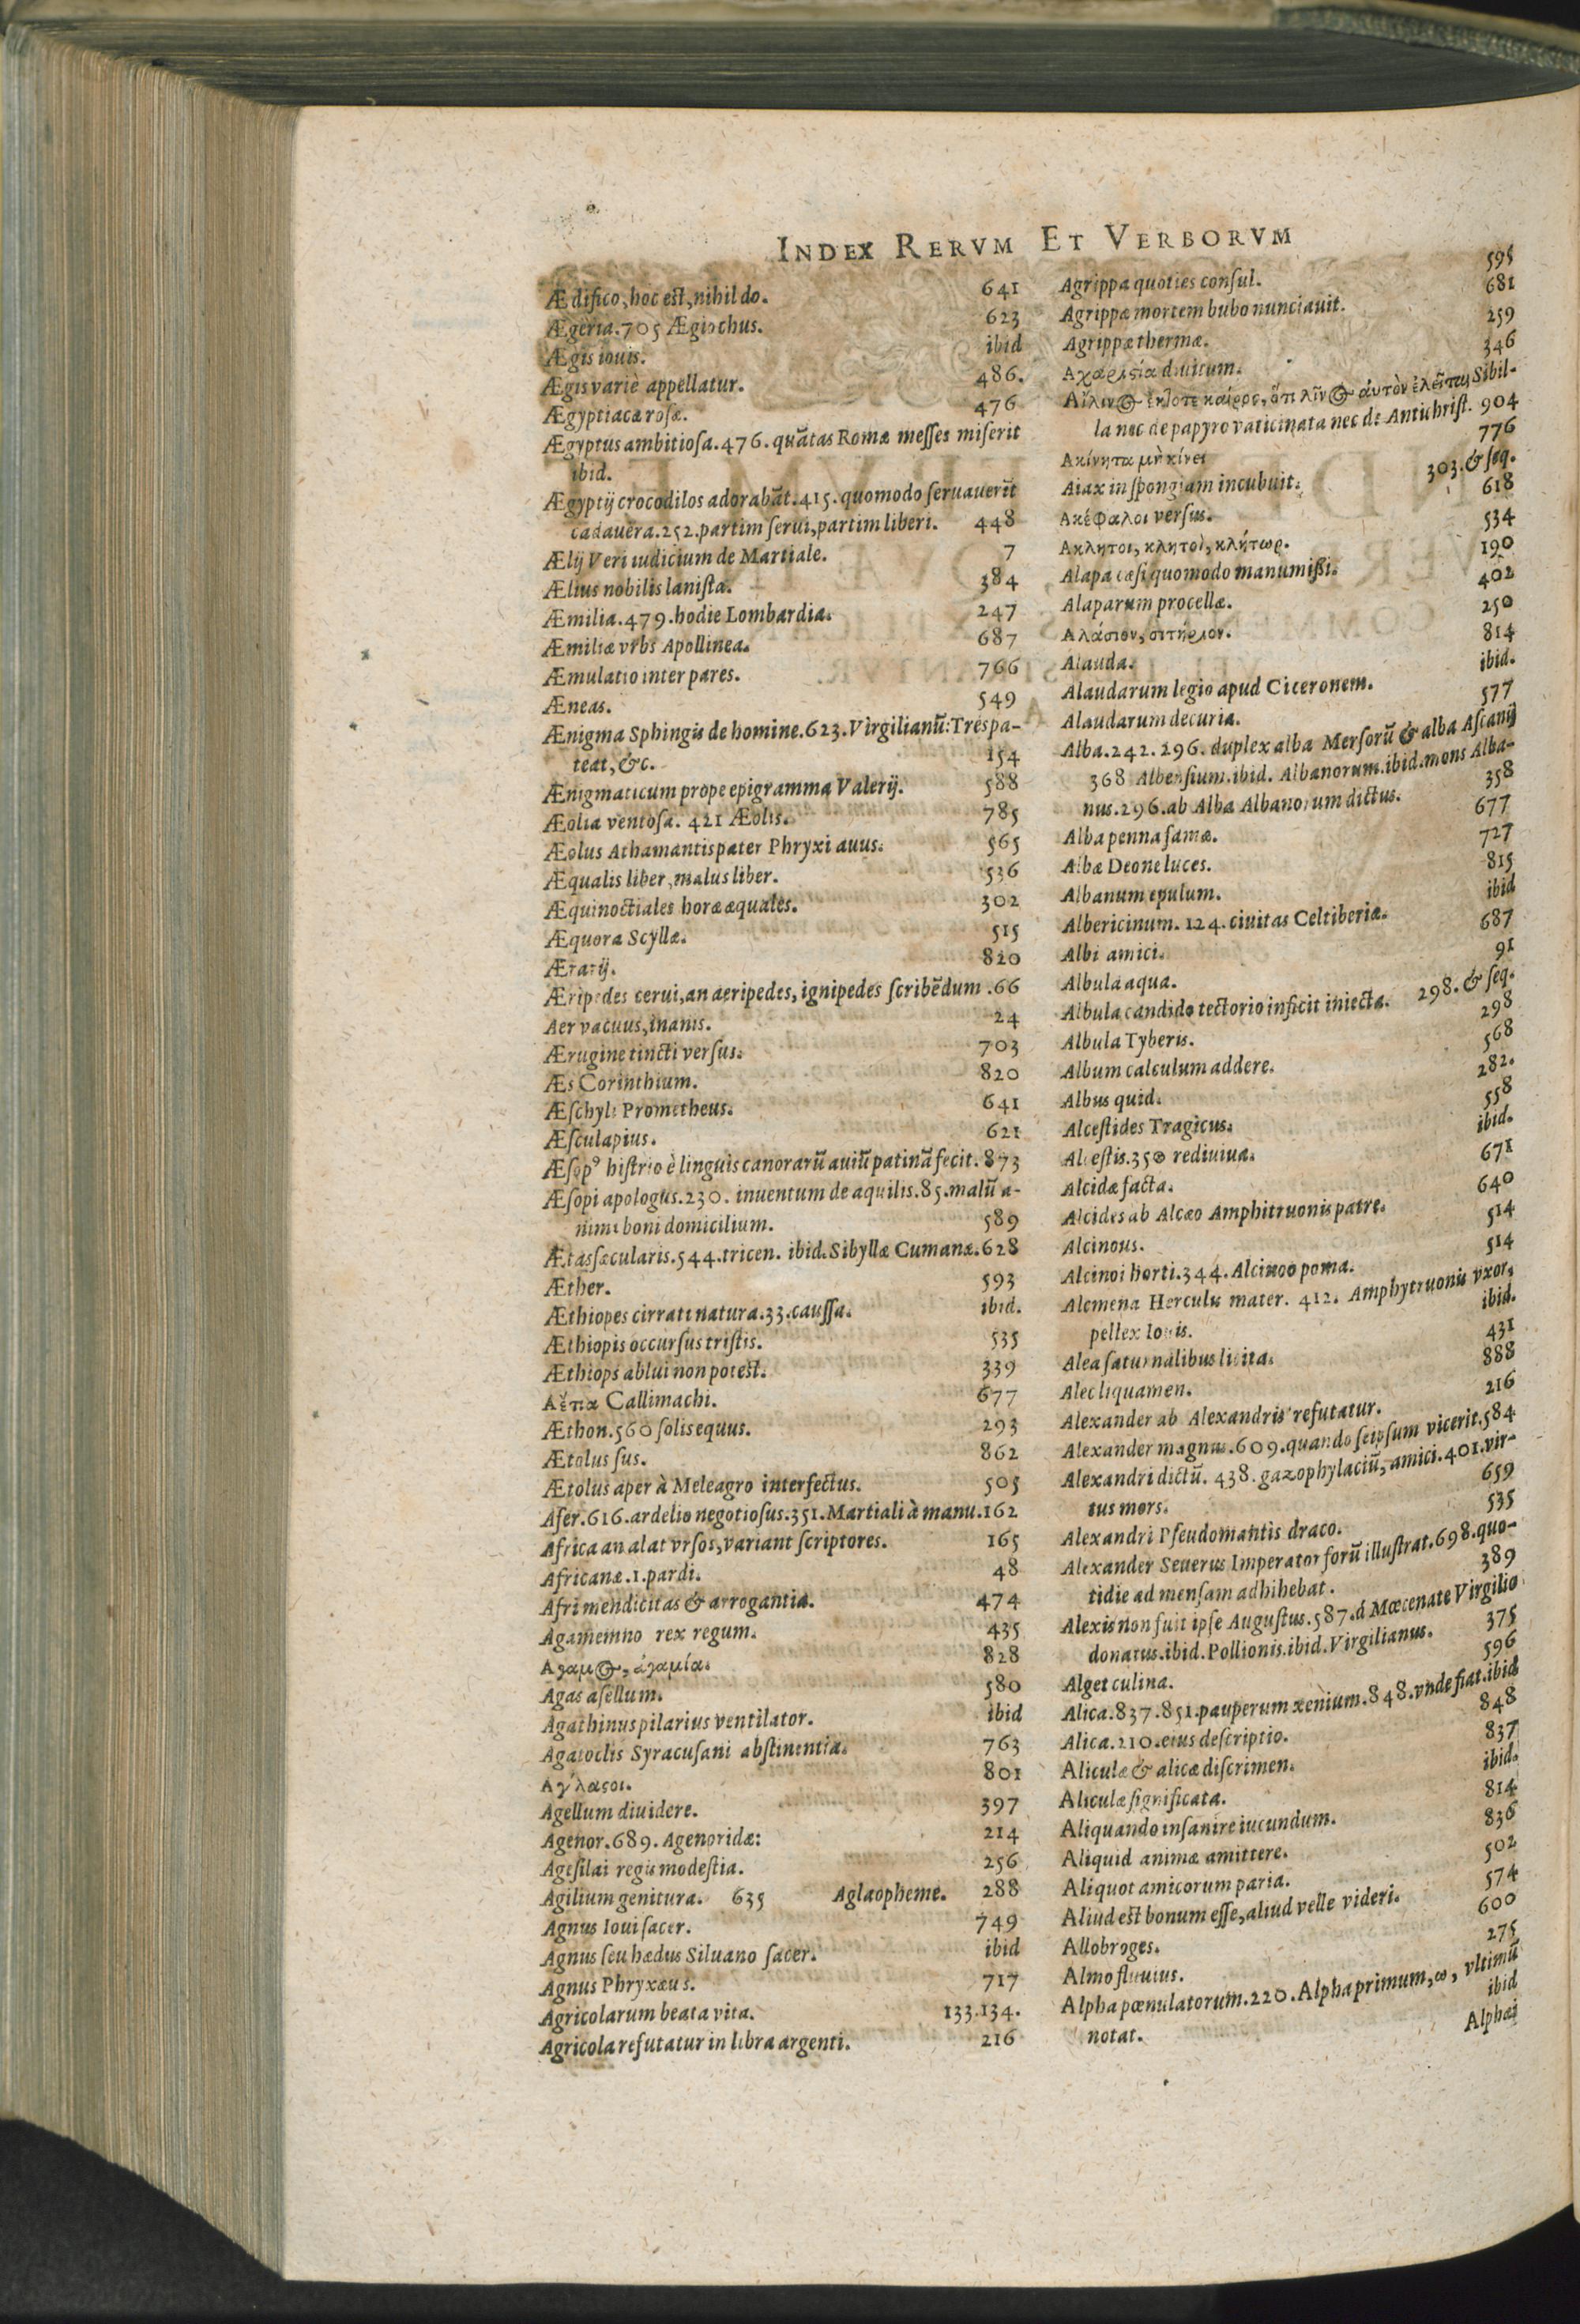 INDEX RERVM ET VERBORVM
Ædifico, hoc est, nihil do. 641
Ægeria. 705 Ægiochus. 623
Ægis iouis. ibid
Ægis variè appellatur. 486.
Ægyptiacæ rosæ. 476
Ægyptus ambitiosa. 476. quãtas Romæ messes miserit
ibid.
Ægyptij crocodilos adorabãt. 415. quomodo seruauerĩt
cadauera. 252. partim serui, partim liberi. 448
Ælij Veri iudicium de Martiale. 7
Ælius nobilis lanista. 384
Æmilia. 479. hodie Lombardia. 247
Æmiliæ vrbs Apollinea. 687
Æmulatio inter pares. 766
Æneas. 549
Ænigma Sphingis de homine. 623. Virgilianũ: Tres pa-
teat, &c. 154
Ænigmaticum prope epigramma Valerij. 588
Æolia ventosa. 421 Æolis. 785
Æolus Athamantis pater Phryxi auus. 565
Æqualis liber, malus liber. 536
Æquinoctiales horæ æquales. 302
Æquora Scyllæ. 515
Ærarij. 820
Æripedes cerui, an aeripedes, ignipedes scribẽdum. 66
Aer vacuus, inanis. 24
Ærugine tincti versus. 703
Æs Corinthium. 820
Æschyli Prometheus. 641
Æsculapius. 621
Æsopꝰ histrio è linguis canorarũ auiũ patinã fecit. 873
Æsopi apologus. 230. inuentum de aquilis. 85. malũ a-
nimi boni domicilium. 589
Ætas sæcularis. 544. tricen. ibid. Sibyllæ Cumanæ. 628
Æther. 593
Æthiopes cirrati natura. 33. caussa. ibid.
Æthiopis occursus tristis. 535
Æthiops ablui non potest. 339
Αἴτια Callimachi. 677
Æthon. 560 solis equus. 293
Ætolus sus. 862
Ætolus aper à Meleagro interfectus. 505
Afer. 616. ardelio negotiosus. 351. Martiali à manu. 162
Africa an alat vrsos, variant scriptores. 165
Africanæ. 1. pardi. 48
Afri mendicitas & arrogantia. 474
Agamemno rex regum. 435
Αγαμος, ἀγαμία. 828
Agas asellum. 580
Agathinus pilarius ventilator. ibid
Agatoclis Syracusani abstinentia. 763
Αγέλαστοι. 801
Agellum diuidere. 397
Agenor. 689. Agenoridæ: 214
Agesilai regis modestia. 256
Agilium genitura. 635 Aglaopheme. 288
Agnus Ioui sacer. 749
Agnus seu hædus Siluano sacer. ibid
Agnus Phryxæus. 717
Agricolarum beata vita. 133.134.
Agricola refutatur in libra argenti. 216
Agrippa quoties consul. 595
Agrippæ mortem bubo nunciauit. 681
Agrippæ thermæ. 259
Αχαριστία diuitum. 346
Sibil-
la nec de papyro vaticinata nec de Antichrist. 904
Ακίνητα μὴ κίνει 776
Aiax in spongiam incubuit. 303. & seq.
Ακέφαλοι versus. 618
Ακλητοι, κλητοὶ, κλήτωρ. 534
Alapa cæsi quomodo manumissi. 190
Alaparum procellæ. 402
Αλάσιον, σιτήριον. 250
Alauda. 814
Alaudarum legio apud Ciceronem. ibid.
Alaudarum decuria. 577
Alba. 242. 296. duplex alba Mersorũ & alba Ascanij
368 Albensium. ibid. Albanorum. ibid. mons Alba-
nus. 296. ab Alba Albanorum dictus. 358
Alba penna famæ. 677
Albæ Deone luces. 727
Albanum epulum. 815
Albericinum. 124. ciuitas Celtiberiæ. ibid
Albi amici. 687
Albula aqua. 91
Albula candido tectorio inficit iniecta. 298. & seq.
Albula Tyberis. 298
Album calculum addere. 568
Albus quid. 282.
Alcestides Tragicus. 558
Alcestis. 350 rediuiua. ibid.
Alcidæ facta. 671
Alcides ab Alcæo Amphitruonis patre. 640
Alcinous. 514
Alcinoi horti. 344. Alcinoo poma. 514
Alcmena Herculis mater. 412. Amphytruonis vxor,
pellex Iouis. ibid.
Alea saturnalibus licita. 431
Alec liquamen. 888
Alexander ab Alexandris refutatur. 216
Alexander magnus. 609. quando seipsum vicerit. 584
Alexandri dictũ. 438. gazophylaciũ, amici. 401. vir-
tus mors. 659
Alexandri Pseudomantis draco. 535
Alexander Seuerus Imperator forũ illustrat. 698. quo-
tidie ad mensam adhibebat. 389
Alexis non fuit ipse Augustus. 587. à Mœcenate Virgilio
donatus. ibid. Pollionis. ibid. Virgilianus. 375
Alget culina. 596
Alica. 837. 851. pauperum xenium. 848. vnde fiat. ibid
Alica. 210. eius descriptio. 848
Aliculæ & alicæ discrimen. 837
Aliculæ significata. ibid.
Aliquando insanire iucundum. 814
Aliquid animæ amittere. 836
Aliquot amicorum paria. 502
Aliud est bonum esse, aliud velle videri. 574
Allobroges. 600
Almo fluuius. 275
Alpha pœnulatorum. 220. Alpha primum, ω, vltimũ
notat. ibid
Alphæi